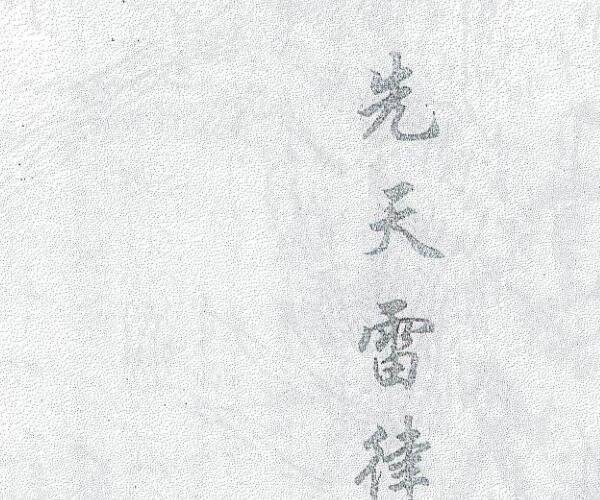 先天雷律